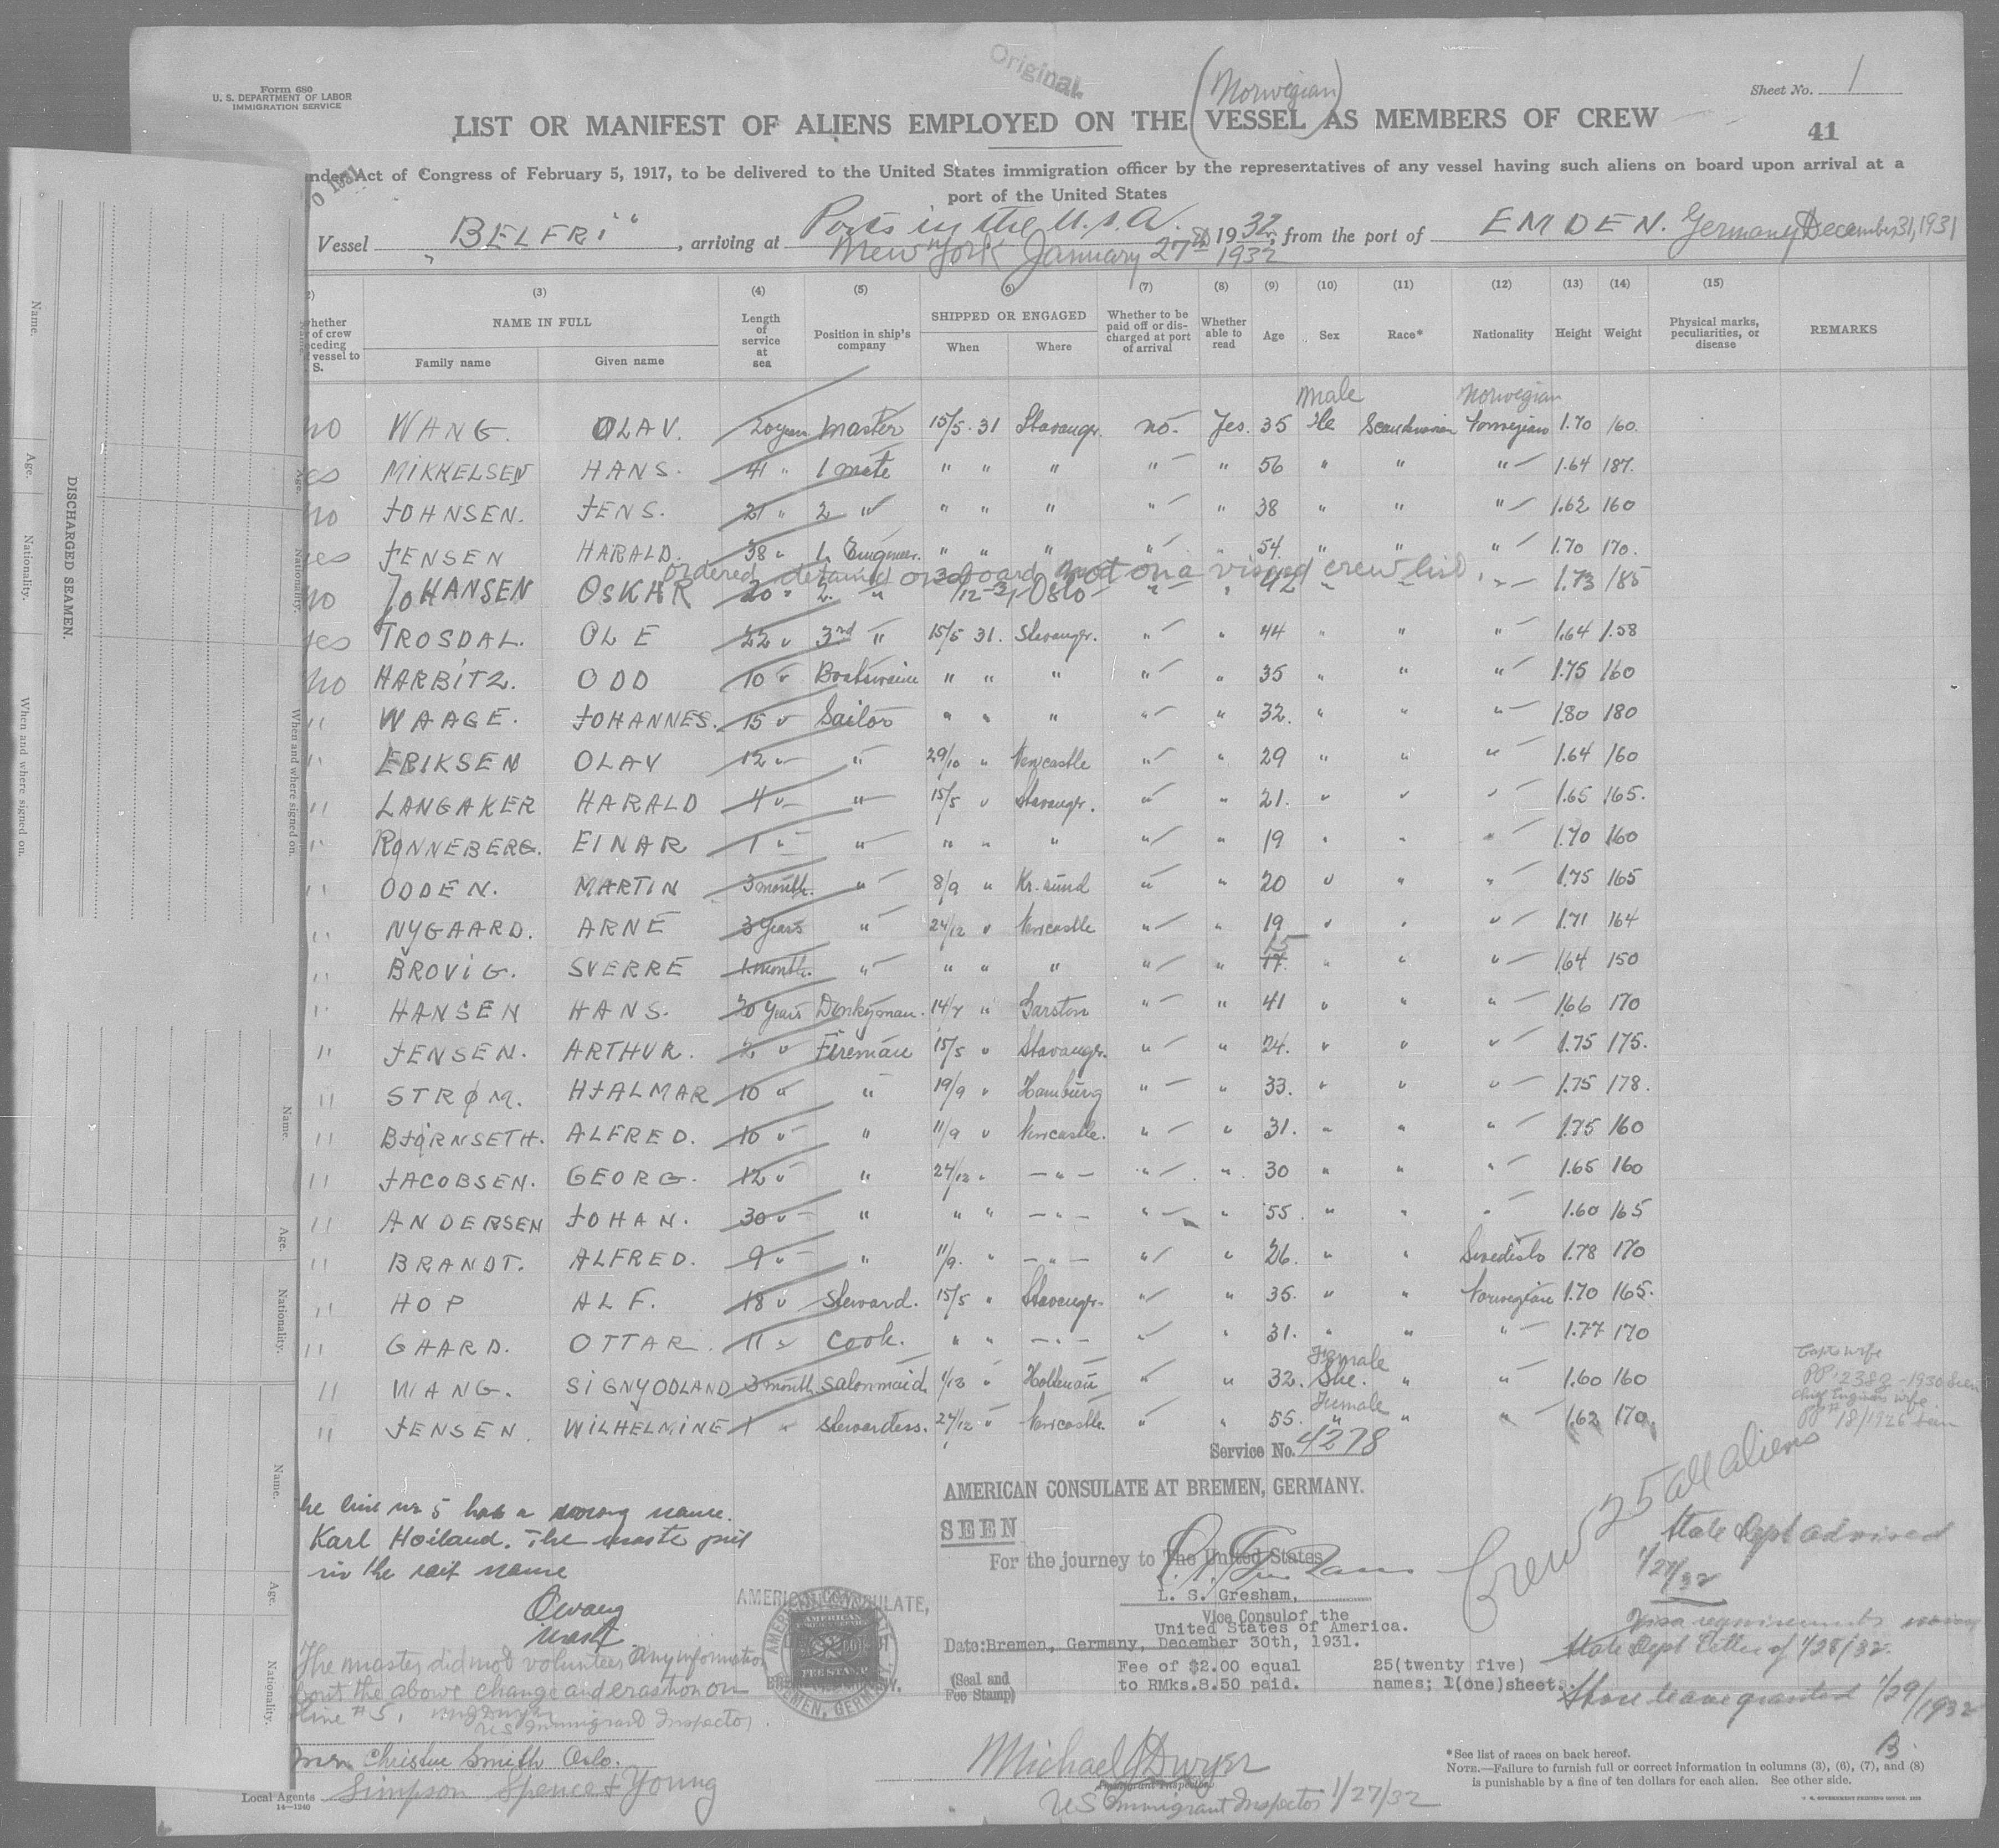 Original.
Form 680
U. S. DEPARTMENT OF LABOR
IMMIGRATION SERVICE
(Norwegian)
Sheet No. 1
LIST OR MANIFEST OF ALIENS EMPLOYED ON THE VESSEL AS MEMBERS OF CREW
41
Act of Congress of February 5, 1917, to be delivered to the United States immigration officer by the representatives of any vessel having such aliens on board upon arrival at a
port of the United States
Vessel „BELFRI“, arriving at Ports in the U.S.A. 1932, from the port of EMDEN. Germany December 31, 1931
New York January 27th 1932
(3) (4) (5) (6) (7) (8) (9) (10) (11) (12) (13) (14) (15)
NAME IN FULL Length of service at sea Position in ship's company SHIPPED OR ENGAGED Whether to be paid off or discharged at port of arrival Whether able to read Age Sex Race* Nationality Height Weight Physical marks, peculiarities, or disease REMARKS
Family name Given name When Where
Male Norwegian
no WANG. OLAV. 20 years Master 15/5. 31 Stavanger. no. Yes. 35 He Scandinavian Norwegian 1.70 160.
MIKKELSEN HANS. 41 " 1 mate " " " " " 56 " " " 1.64 187.
no JOHNSEN. JENS. 21 " 2 " " " " " " 38 " " " 1.62 160
JENSEN HARALD. 38 " 1. Engineer. " " " " " 54. " " " 1.70 170.
ordered detained on board not on a visaed crew list
no JOHANSEN OSKAR 20 " 2. " Oslo " " 42 " " 1.73 185
TROSDAL. OLE 22 " 3rd " 15/5 31. Stavanger. " " 44 " " " 1.64 1.58
no HARBITZ. ODD 10 " Boatswain " " " " " 35 " " " 1.75 160
" WAAGE. JOHANNES. 15 " Sailor " " " " " 32. " " " 1.80 180
" ERIKSEN OLAV 12 " " 29/10 " Newcastle " " 29 " " " 1.64 160
" LANGAKER HARALD 4 " " 15/5 " Stavanger. " " 21. " " " 1.65 165.
" RØNNEBERG. EINAR 1 " " " " " " " 19 " " " 1.70 160
" ODDEN. MARTIN 3 month. " 8/9 " Kr. sund " " 20 " " " 1.75 165
" NYGAARD. ARNE 3 years " 24/12 " Newcastle " " 19 " " " 1.71 164
" BROVIG. SVERRE 1 month. " " " " " " 17. " " " 1.64 150
" HANSEN HANS. 20 years Donkeyman. 14/7 " Garston " " 41 " " " 1.66 170
" JENSEN. ARTHUR. 2 " Fireman 15/5 " Stavanger. " " 24. " " " 1.75 175.
" STRØM. HJALMAR 10 " " 19/9 " Hamburg " " 33. " " " 1.75 178.
" BJØRNSETH. ALFRED. 10 " " 11/9 " Newcastle. " " 31. " " " 1.75 160
" JACOBSEN. GEORG. 12 " " 24/12 " — " — " " 30 " " " 1.65 160
" ANDERSEN JOHAN. 30 " " " " — " — " " 55. " " " 1.60 165
" BRANDT. ALFRED. 9 " " 11/9. " — " — " " 26. " " Swedish 1.78 170
" HOP ALF. 18 " Steward. 15/5 " Stavanger. " " 35. " " Norwegian 1.70 165.
" GAARD. OTTAR. 11 " Cook. " " — " — " " 31. " " " 1.77 170
Female Capts wife
" WANG. SIGNY ODLAND 3 month Salonmaid. Holtenau " " 32. She. " " 1.60 160 PP. 2382 - 1930 seen
Female Chief Engineers wife
" JENSEN. WILHELMINE 1 " Stewardess. 24/12 " Newcastle. " " 55. " " " 1.62 170. PP# 18/1926 seen
Service No. 4278
AMERICAN CONSULATE AT BREMEN, GERMANY.
SEEN
For the journey to The United States
L. S. Gresham,
Vice Consul of the
United States of America.
Date: Bremen, Germany, December 30th, 1931.
(Seal and Fee Stamp)
Fee of $2.00 equal
to RMks.8.50 paid.
25(twenty five)
names; 1(one)sheet.
line nr 5 has a wrong name.
Karl Hoiland. The master put
in the name
OWang
Mast.
AMERICAN CONSULATE,
BREMEN, GERMANY.
AMERICAN
FEE STAMP
The master did not volunteer any information
the above change and erasion on
line # 5.
US Immigrant Inspector.
Christen Smith Oslo.
Local Agents Simpson Spence & Young
14—1240
Crew 25 all aliens
State Dept advised
1/27/32
Visa requirements
State Dept Letter of 1/28/32.
Shore leave granted 1/29/1932
Michael J Dwyer
Immigrant Inspector
US Immigrant Inspector 1/27/32
*See list of races on back hereof.
NOTE.—Failure to furnish full or correct information in columns (3), (6), (7), and (8)
is punishable by a fine of ten dollars for each alien. See other side.
DISCHARGED SEAMEN.
Name.
Age.
Nationality.
When and where signed on.
Name.
Age.
Nationality.
Name.
Age.
Nationality.